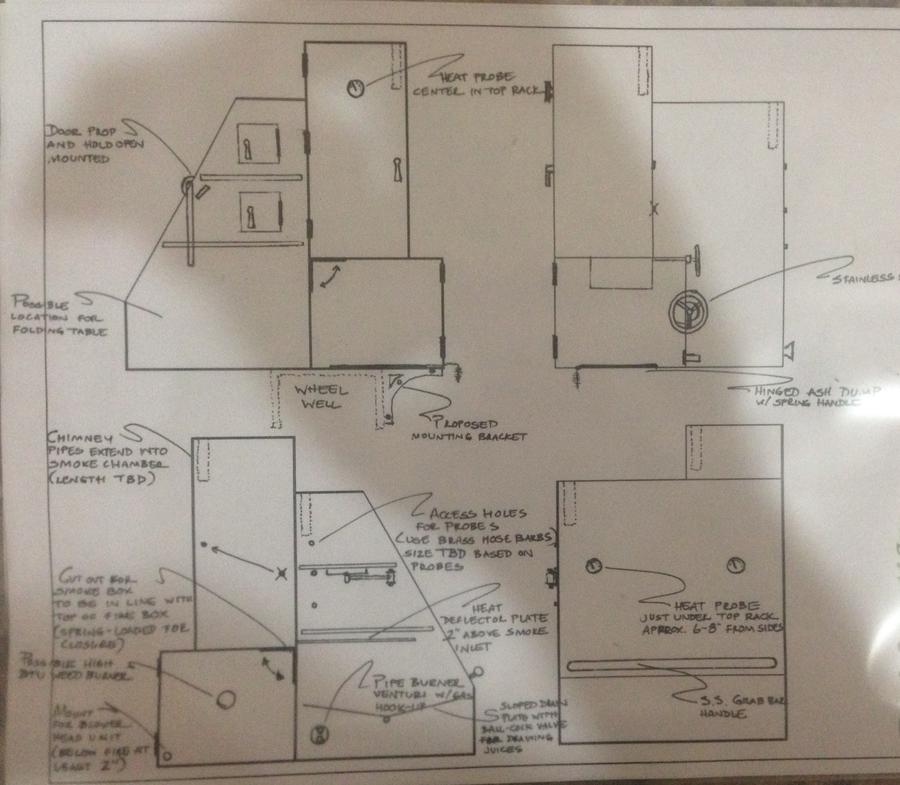 HEAT PROBE
CENTER IN TOP RACK
DOOR PROP
AND HOLD OPEN
MOUNTED
POSSIBLE
LOCATION FOR
FOLDING TABLE
STAINLESS
WHEEL
WELL
HINGED ASH DUMP
W/ SPRING HANDLE
PROPOSED
MOUNTING BRACKET
CHIMNEY
PIPES EXTEND INTO
SMOKE CHAMBER
(LENGTH TBD)
ACCESS HOLES
FOR PROBES
(USE BRASS HOSE BARBS)
SIZE TBD BASED ON
PROBES
CUT OUT FOR
SMOKE BOX
TO BE IN LINE WITH
TOP OF FIRE BOX
(SPRING-LOADED FOR
CLOSURE)
HEAT
DEFLECTOR PLATE
2" ABOVE SMOKE
INLET
HEAT PROBE
JUST UNDER TOP RACK
APPROX. 6-8" FROM SIDES
POSSIBLE HIGH
BTU WEED BURNER
PIPE BURNER
VENTURI W/GAS
HOOK-UP
S.S. GRAB BAR
HANDLE
MOUNT
FOR BLOWER
HEAD UNIT
(BELOW FIRE AT
LEAST 2")
SLOPED DRAIN
PLATE WITH
BALL-COCK VALVE
FOR DRAINING
JUICES